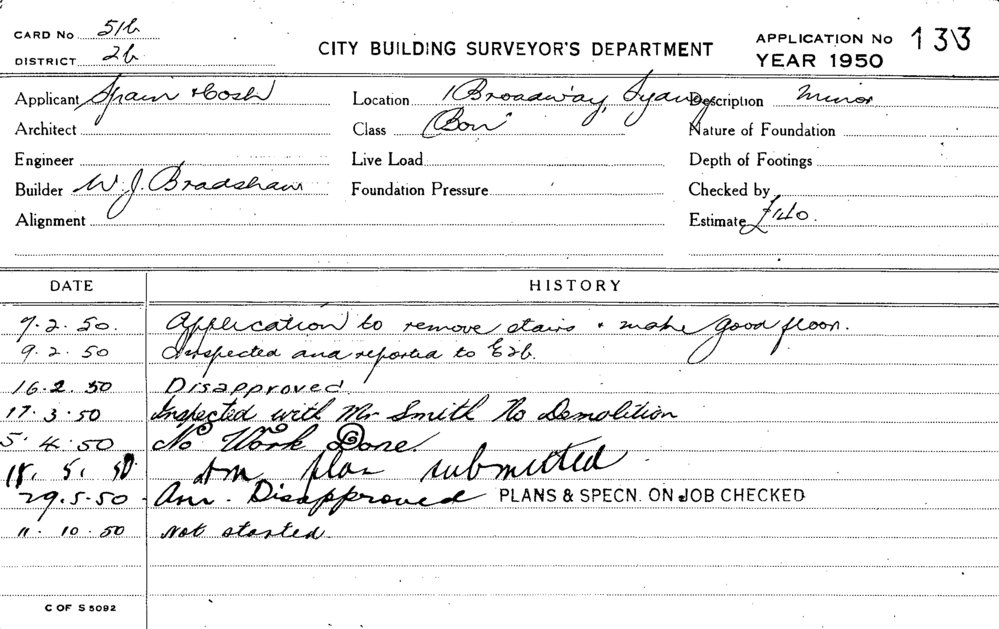 CARD No 51b
DISTRICT 2b
CITY BUILDING SURVEYOR'S DEPARTMENT
APPLICATION No 133
YEAR 1950
Applicant Spain & Cosh Location 1 Broadway, Sydney Description Minor
Architect Class Nature of Foundation
Engineer Live Load Depth of Footings
Builder W. J. Bradshaw Foundation Pressure Checked by
Alignment Estimate £140.
DATE HISTORY
7.2.50. Application to remove stairs & make good floor.
9.2.50 Inspected and reported to
16.2.50 Disapproved
17.3.50 Inspected with Mr Smith No Demolition
5.4.50 No Work Done.
18.5.50 Am plan submitted
29.5.50 Am. Disapproved PLANS & SPECN. ON JOB CHECKED
11.10.50 Not started.
C OF S 5092